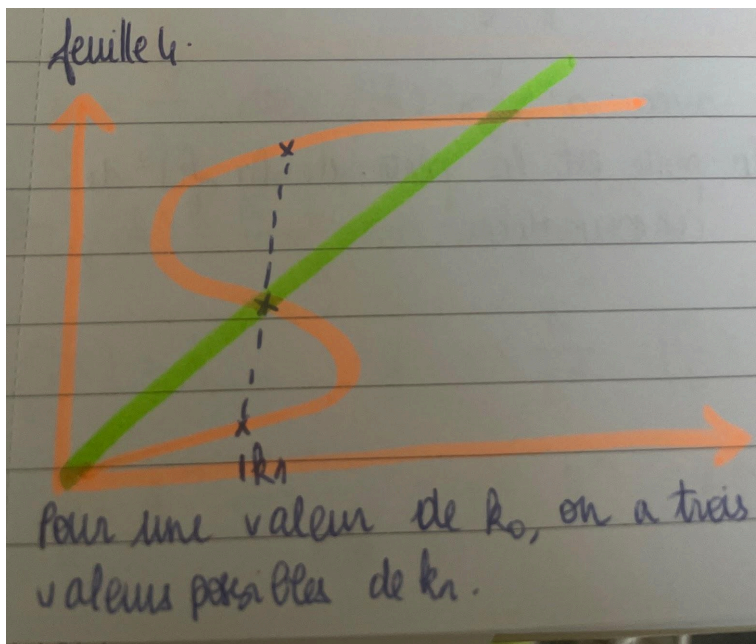 feuille 4.
k1
Pour une valeur de k0, on a trois
valeurs possibles de k1.